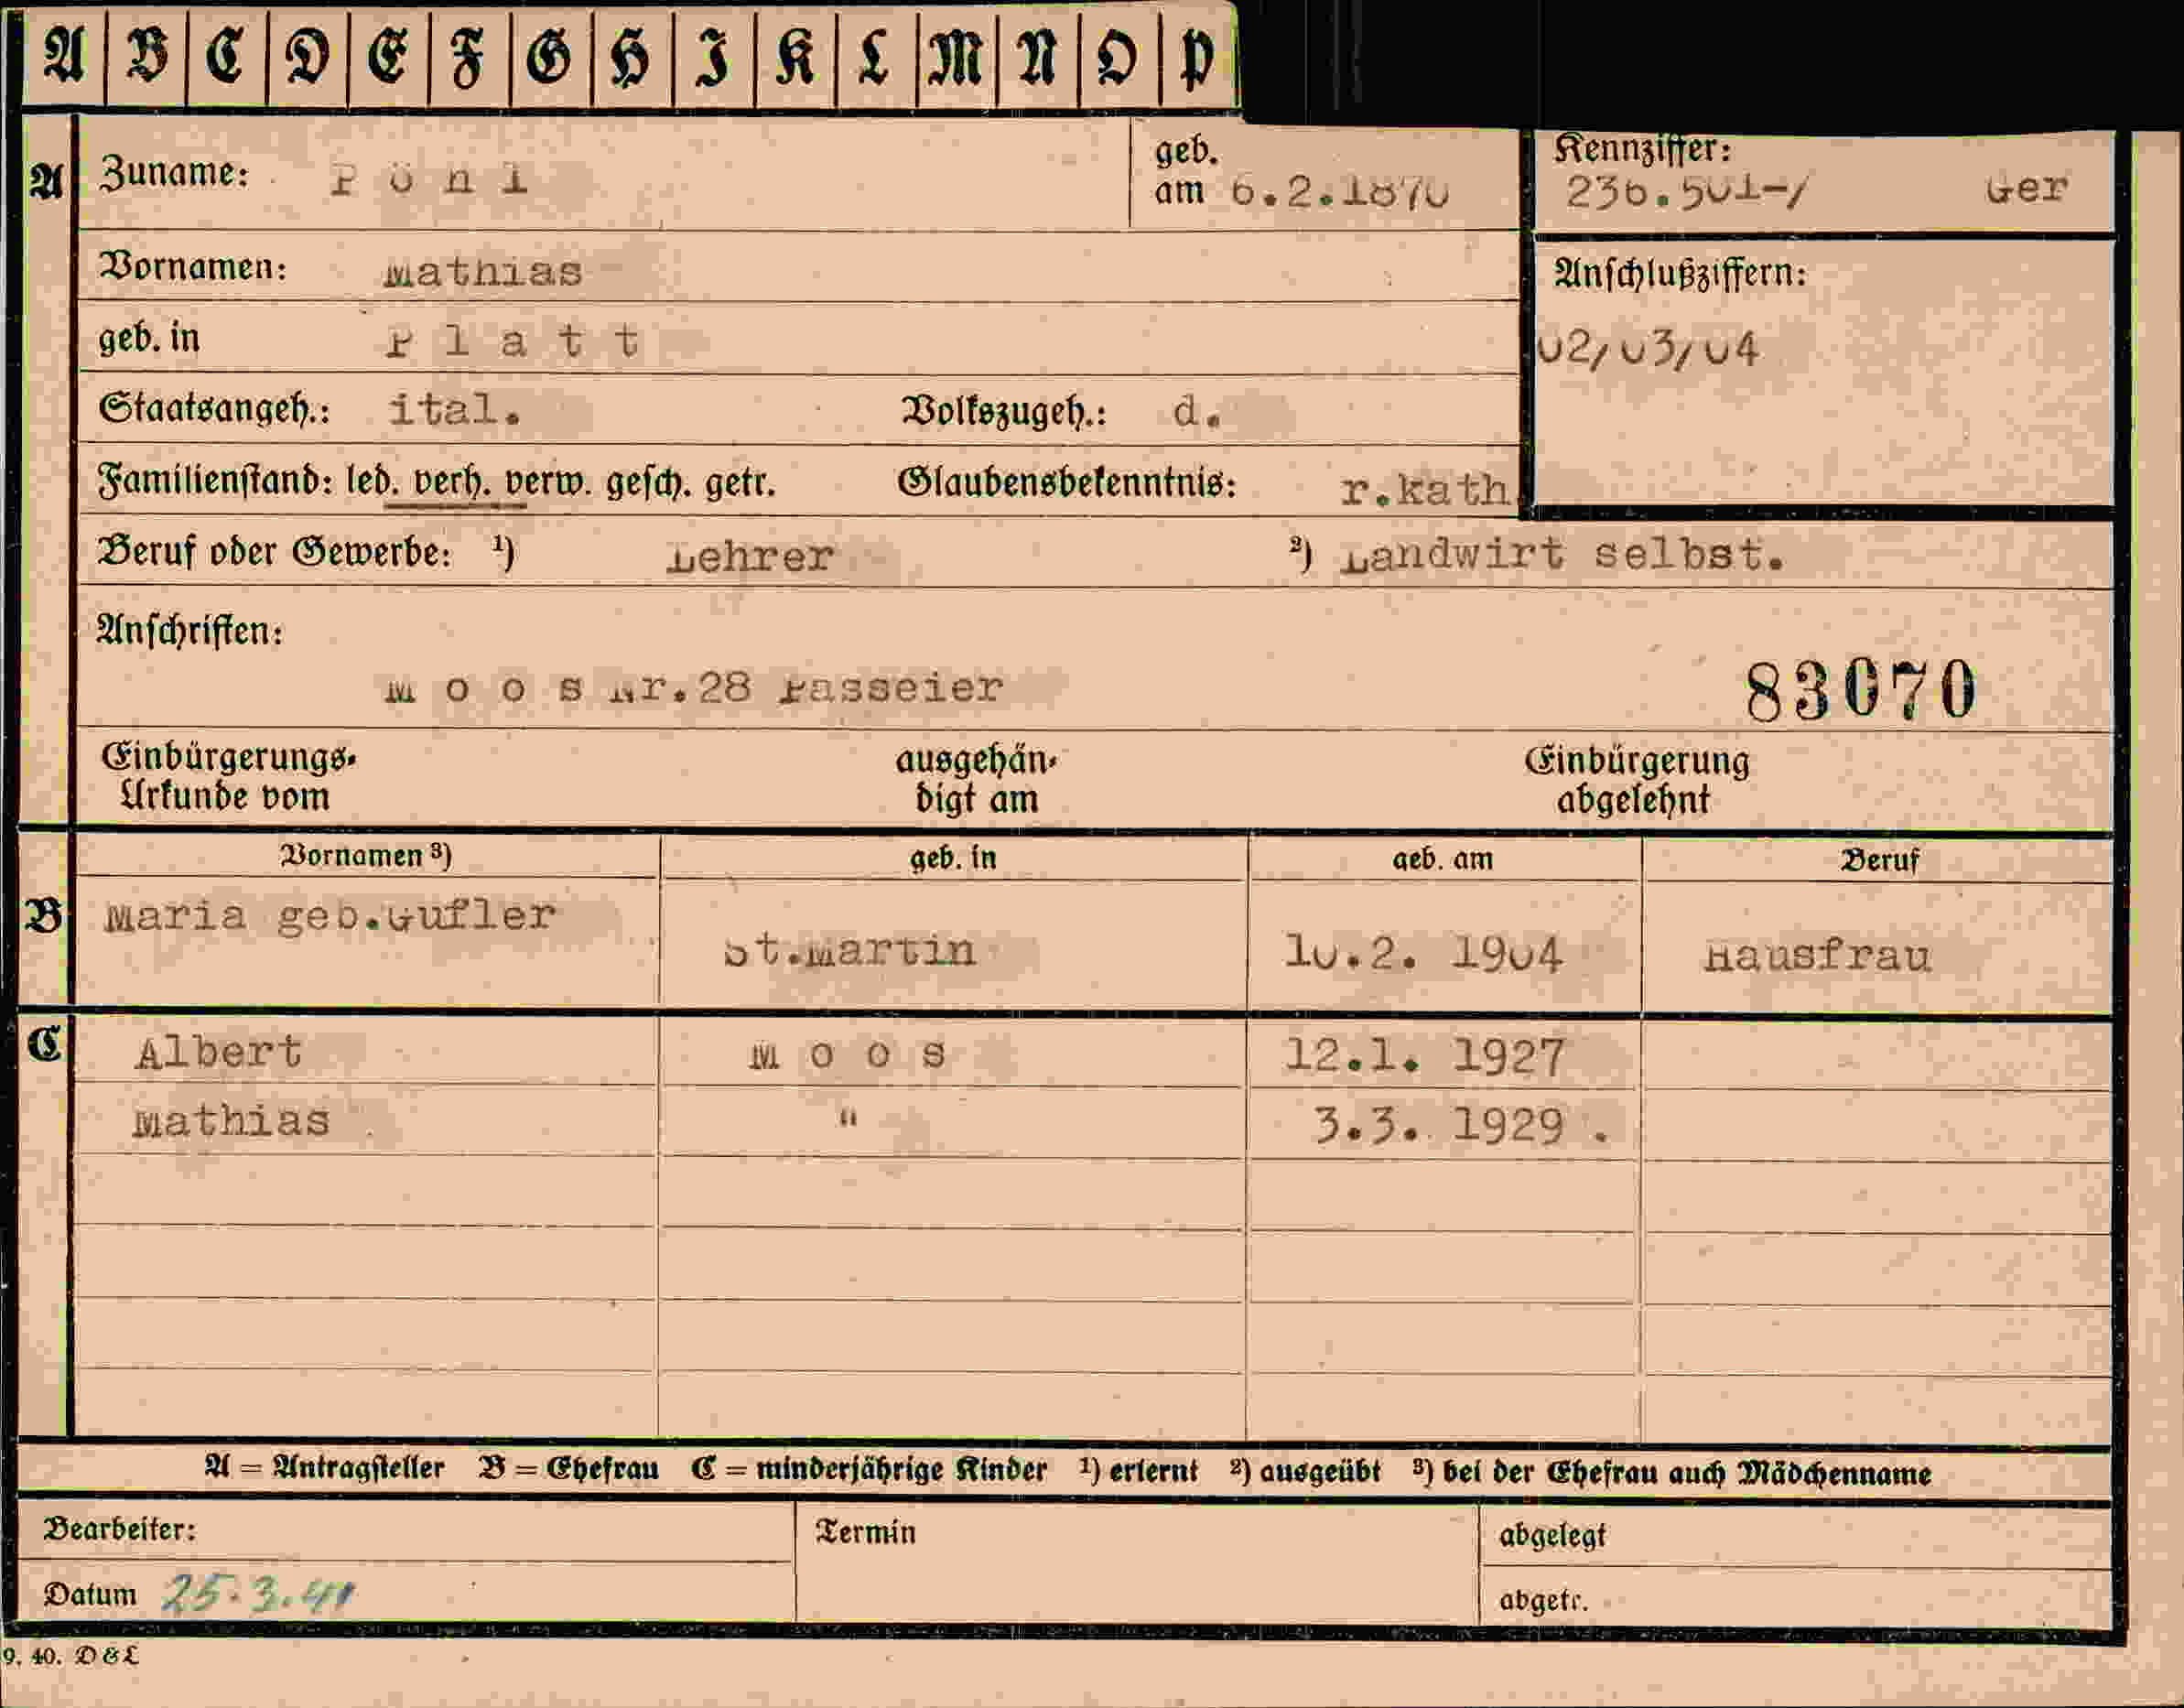 A B C D E F G H I K L M N O P
A Zuname: P ö h l geb. am 6.2.1870 Kennziffer: 236.501-/ Ger
Vornamen: Mathias Anschlußziffern:
geb. in P l a t t 02/03/04
Staatsangeh.: ital. Volkszugeh.: d.
Familienstand: led. verh. verw. gesch. getr. Glaubensbekenntnis: r.kath.
Beruf oder Gewerbe: ¹) Lehrer ²) Landwirt selbst.
Anschriften:
M o o s Nr.28 Passeier 83070
Einbürgerungs- ausgehän- Einbürgerung
Urkunde vom digt am abgelehnt
Vornamen ³) geb. in geb. am Beruf
B Maria geb.Gufler St.Martin 10.2. 1904 Hausfrau
C Albert M o o s 12.1. 1927
Mathias " 3.3. 1929 .
A = Antragsteller B = Ehefrau C = minderjährige Kinder ¹) erlernt ²) ausgeübt ³) bei der Ehefrau auch Mädchenname
Bearbeiter: Termin abgelegt
Datum 25.3.41 abgetr.
9. 40. D & L